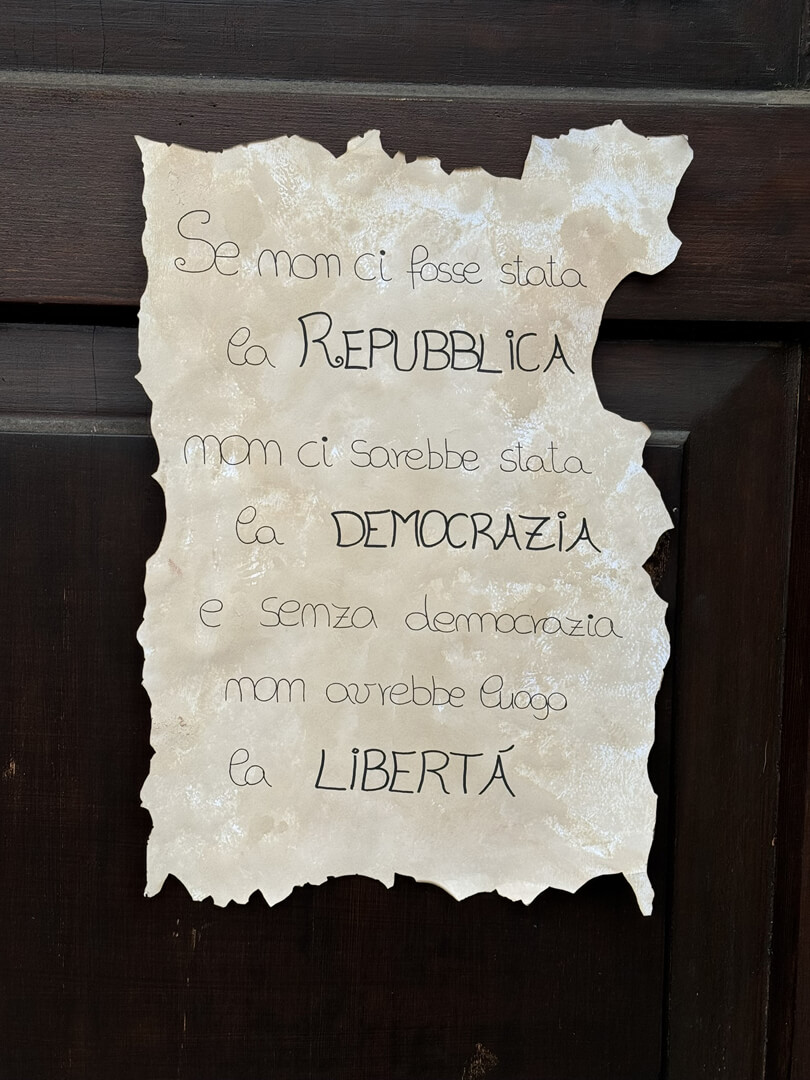 Se non ci fosse stata
la REPUBBLICA
non ci sarebbe stata
la DEMOCRAZIA
e senza democrazia
non avrebbe luogo
la LIBERTÁ